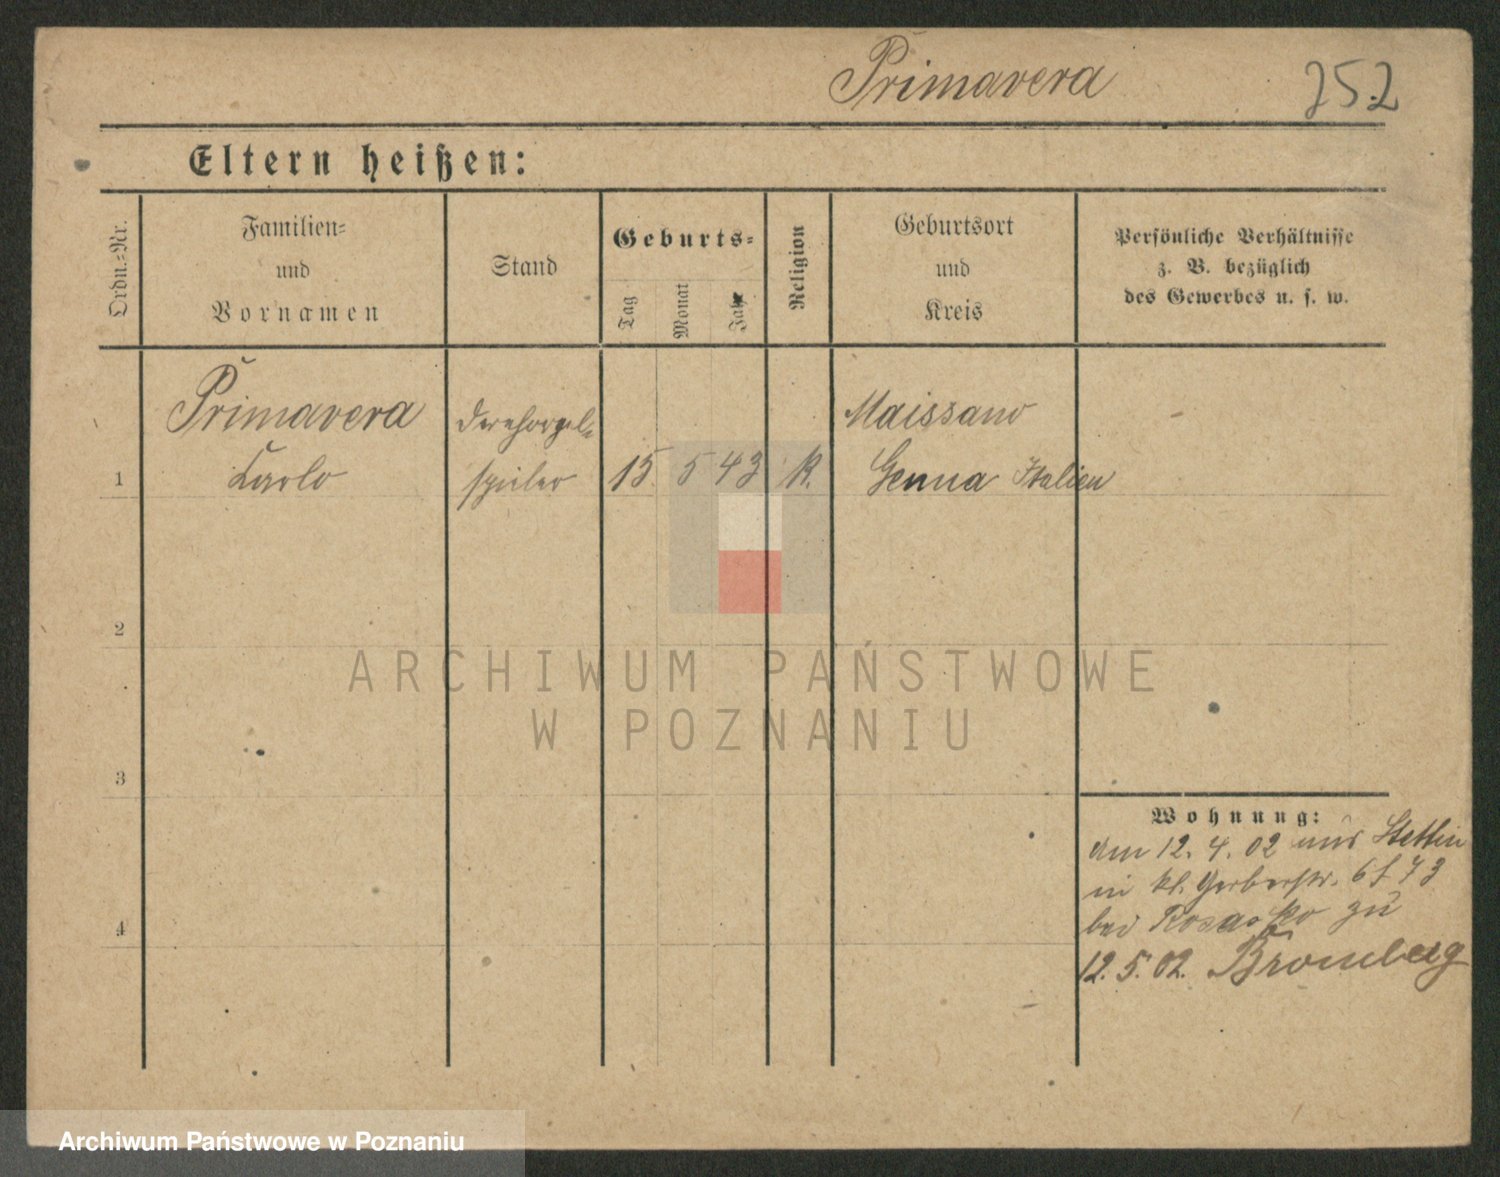 Primavera 252
Eltern heißen:
Ordn.-Nr.
Familien-
und
Vornamen
Stand
Geburts-
Tag
Monat
Jahr
Religion
Geburtsort
und
Kreis
Persönliche Verhältnisse
z. B. bezüglich
des Gewerbes u. s. w.
1
Primavera
Carlo
Drehorgel-
spieler
15. 5 43
K.
Maissano
Genua Italien
2
3
4
Wohnung:
am 12. 4. 02 aus Stettin
in kl. Gerberstr.
bei zu
12. 5. 02. Bromberg
ARCHIWUM PAŃSTWOWE
W POZNANIU
Archiwum Państwowe w Poznaniu